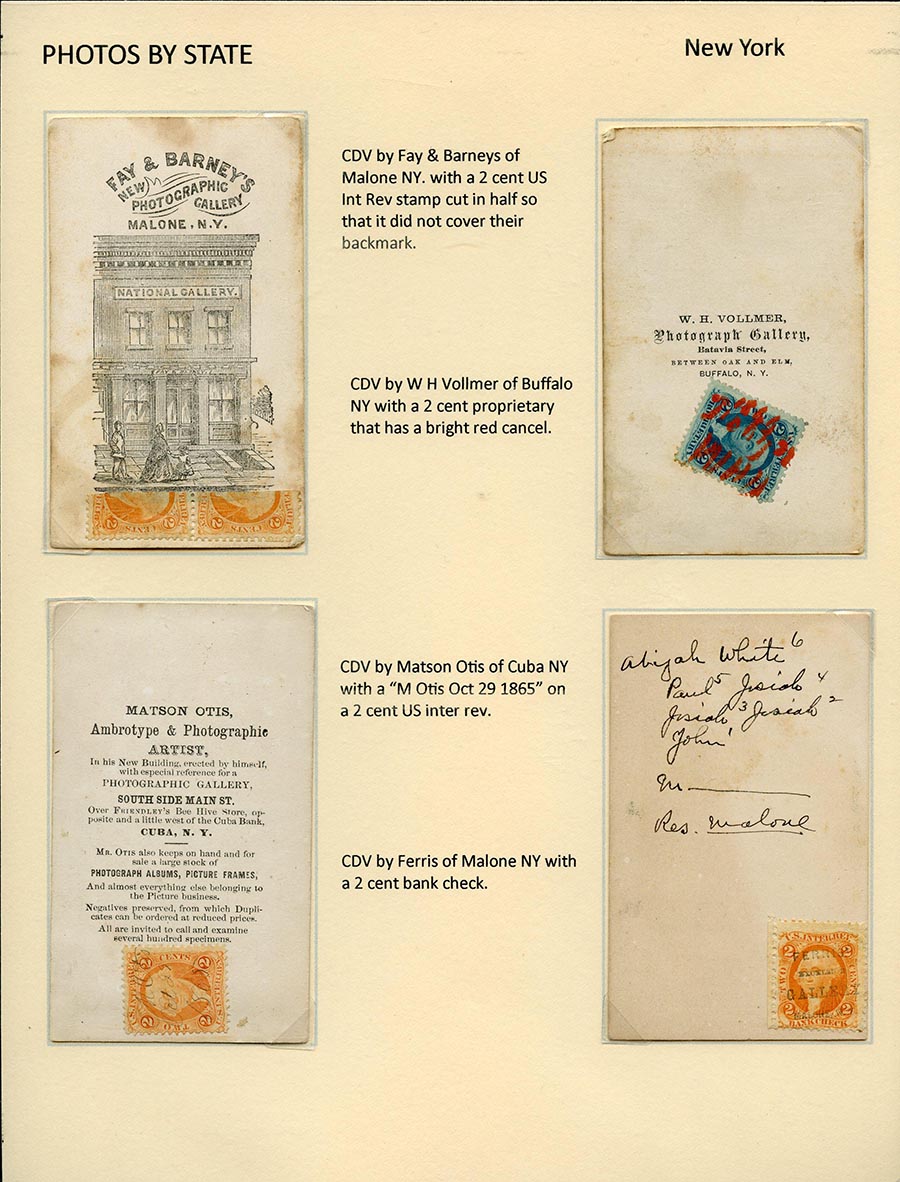 PHOTOS BY STATE
New York
FAY & BARNEY'S
NEW PHOTOGRAPHIC GALLERY
MALONE, N.Y.
NATIONAL GALLERY.
2 CENTS 2
2 CENTS 2
CDV by Fay & Barneys of
Malone NY. with a 2 cent US
Int Rev stamp cut in half so
that it did not cover their
backmark.
W. H. VOLLMER,
Photograph Gallery,
Batavia Street,
BETWEEN OAK AND ELM,
BUFFALO, N. Y.
CDV by W H Vollmer of Buffalo
NY with a 2 cent proprietary
that has a bright red cancel.
MATSON OTIS,
Ambrotype & Photographic
ARTIST,
In his New Building, erected by himself,
with especial reference for a
PHOTOGRAPHIC GALLERY,
SOUTH SIDE MAIN ST.
Over FRIENDLEY'S Bee Hive Store, op-
posite and a little west of the Cuba Bank,
CUBA, N. Y.
MR. OTIS also keeps on hand and for
sale a large stock of
PHOTOGRAPH ALBUMS, PICTURE FRAMES,
And almost everything else belonging to
the Picture business.
Negatives preserved, from which Dupli-
cates can be ordered at reduced prices.
All are invited to call and examine
several hundred specimens.
2 CENTS 2
2 TWO 2
CDV by Matson Otis of Cuba NY
with a “M Otis Oct 29 1865” on
a 2 cent US inter rev.
Abijah White 6
Paul 5 Josiah 4
Josiah 3 Josiah 2
John 1
M
Res. Malone
CDV by Ferris of Malone NY with
a 2 cent bank check.
U.S. INTER. REV.
TWO
CENTS
2 2
BANK CHECK